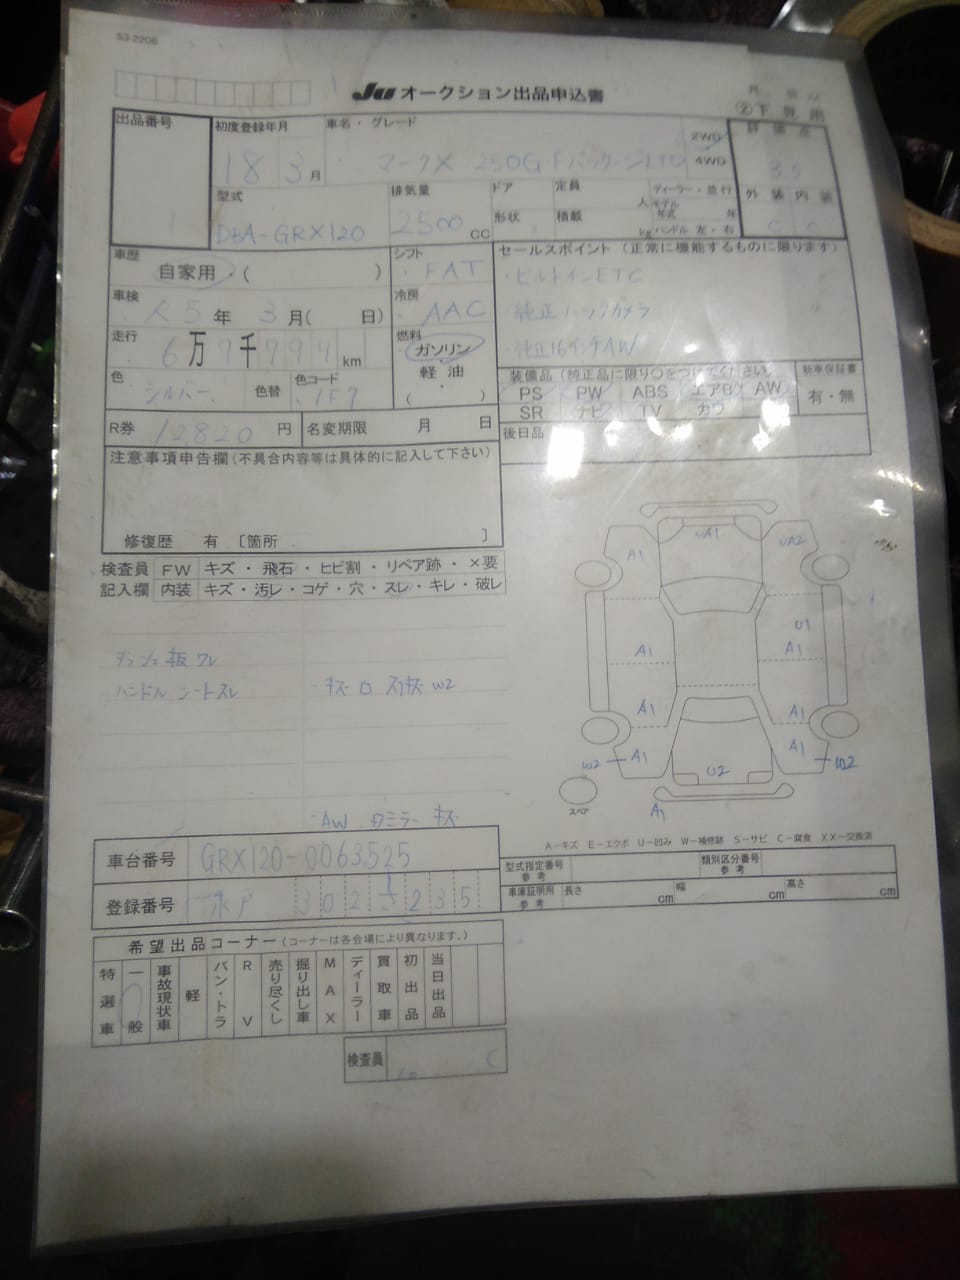 53-2206
Ju オークション出品申込書
②下見用
出品番号
初度登録年月
18 3月
車名・グレード
マークX 250G FパッケージLTD
2WD
4WD
評価点
3.5
外装 内装
C C
型式
DBA-GRX120
排気量
2500 CC
ドア
定員
人
形状
積載
kg
ディーラー・並行
モデル年式 年
ハンドル 左・右
車歴
自家用・( )
シフト
FAT
セールスポイント (正常に機能するものに限ります)
・ビルトインETC
・純正バックカメラ
・純正16インチAW
車検
R5年 3月( 日)
冷房
AAC
走行
6万9千794km
燃料
ガソリン
・
軽油
・
( )
色
シルバー
色替
色コード
1F7
装備品 (純正品に限り○をつけてください)
PS PW ABS エアB AW
SR ナビ TV カワ
新車保証書
有・無
R券 12820 円
名変期限 月 日
後日品
注意事項申告欄(不具合内容等は具体的に記入して下さい)
修復歴 有 〔箇所 〕
検査員 FW キズ・飛石・ヒビ割・リペア跡・×要
記入欄 内装 キズ・汚レ・コゲ・穴・スレ・キレ・破レ
板 ワレ
ハンドル シートスレ
W2
AW ドミラー キズ
A1 UA1 UA2
U1
A1 A1
A1 A1
W2 A1 A1 W2
U2
スペア
A1
A－キズ E－エクボ U－凹み W－補修跡 S－サビ C－腐食 XX－交換済
車台番号 GRX120-0063525
型式指定番号
参考
類別区分番号
参考
登録番号 水戸 302 さ 235
車庫証明用
参考
長さ cm
幅 cm
高さ cm
希望出品コーナー (コーナーは各会場により異なります。)
特選車
一般
事故現状車
軽
バン・トラ
RV
売り尽くし
掘り出し車
MAX
ディーラー
買取車
初出品
当日出品
検査員